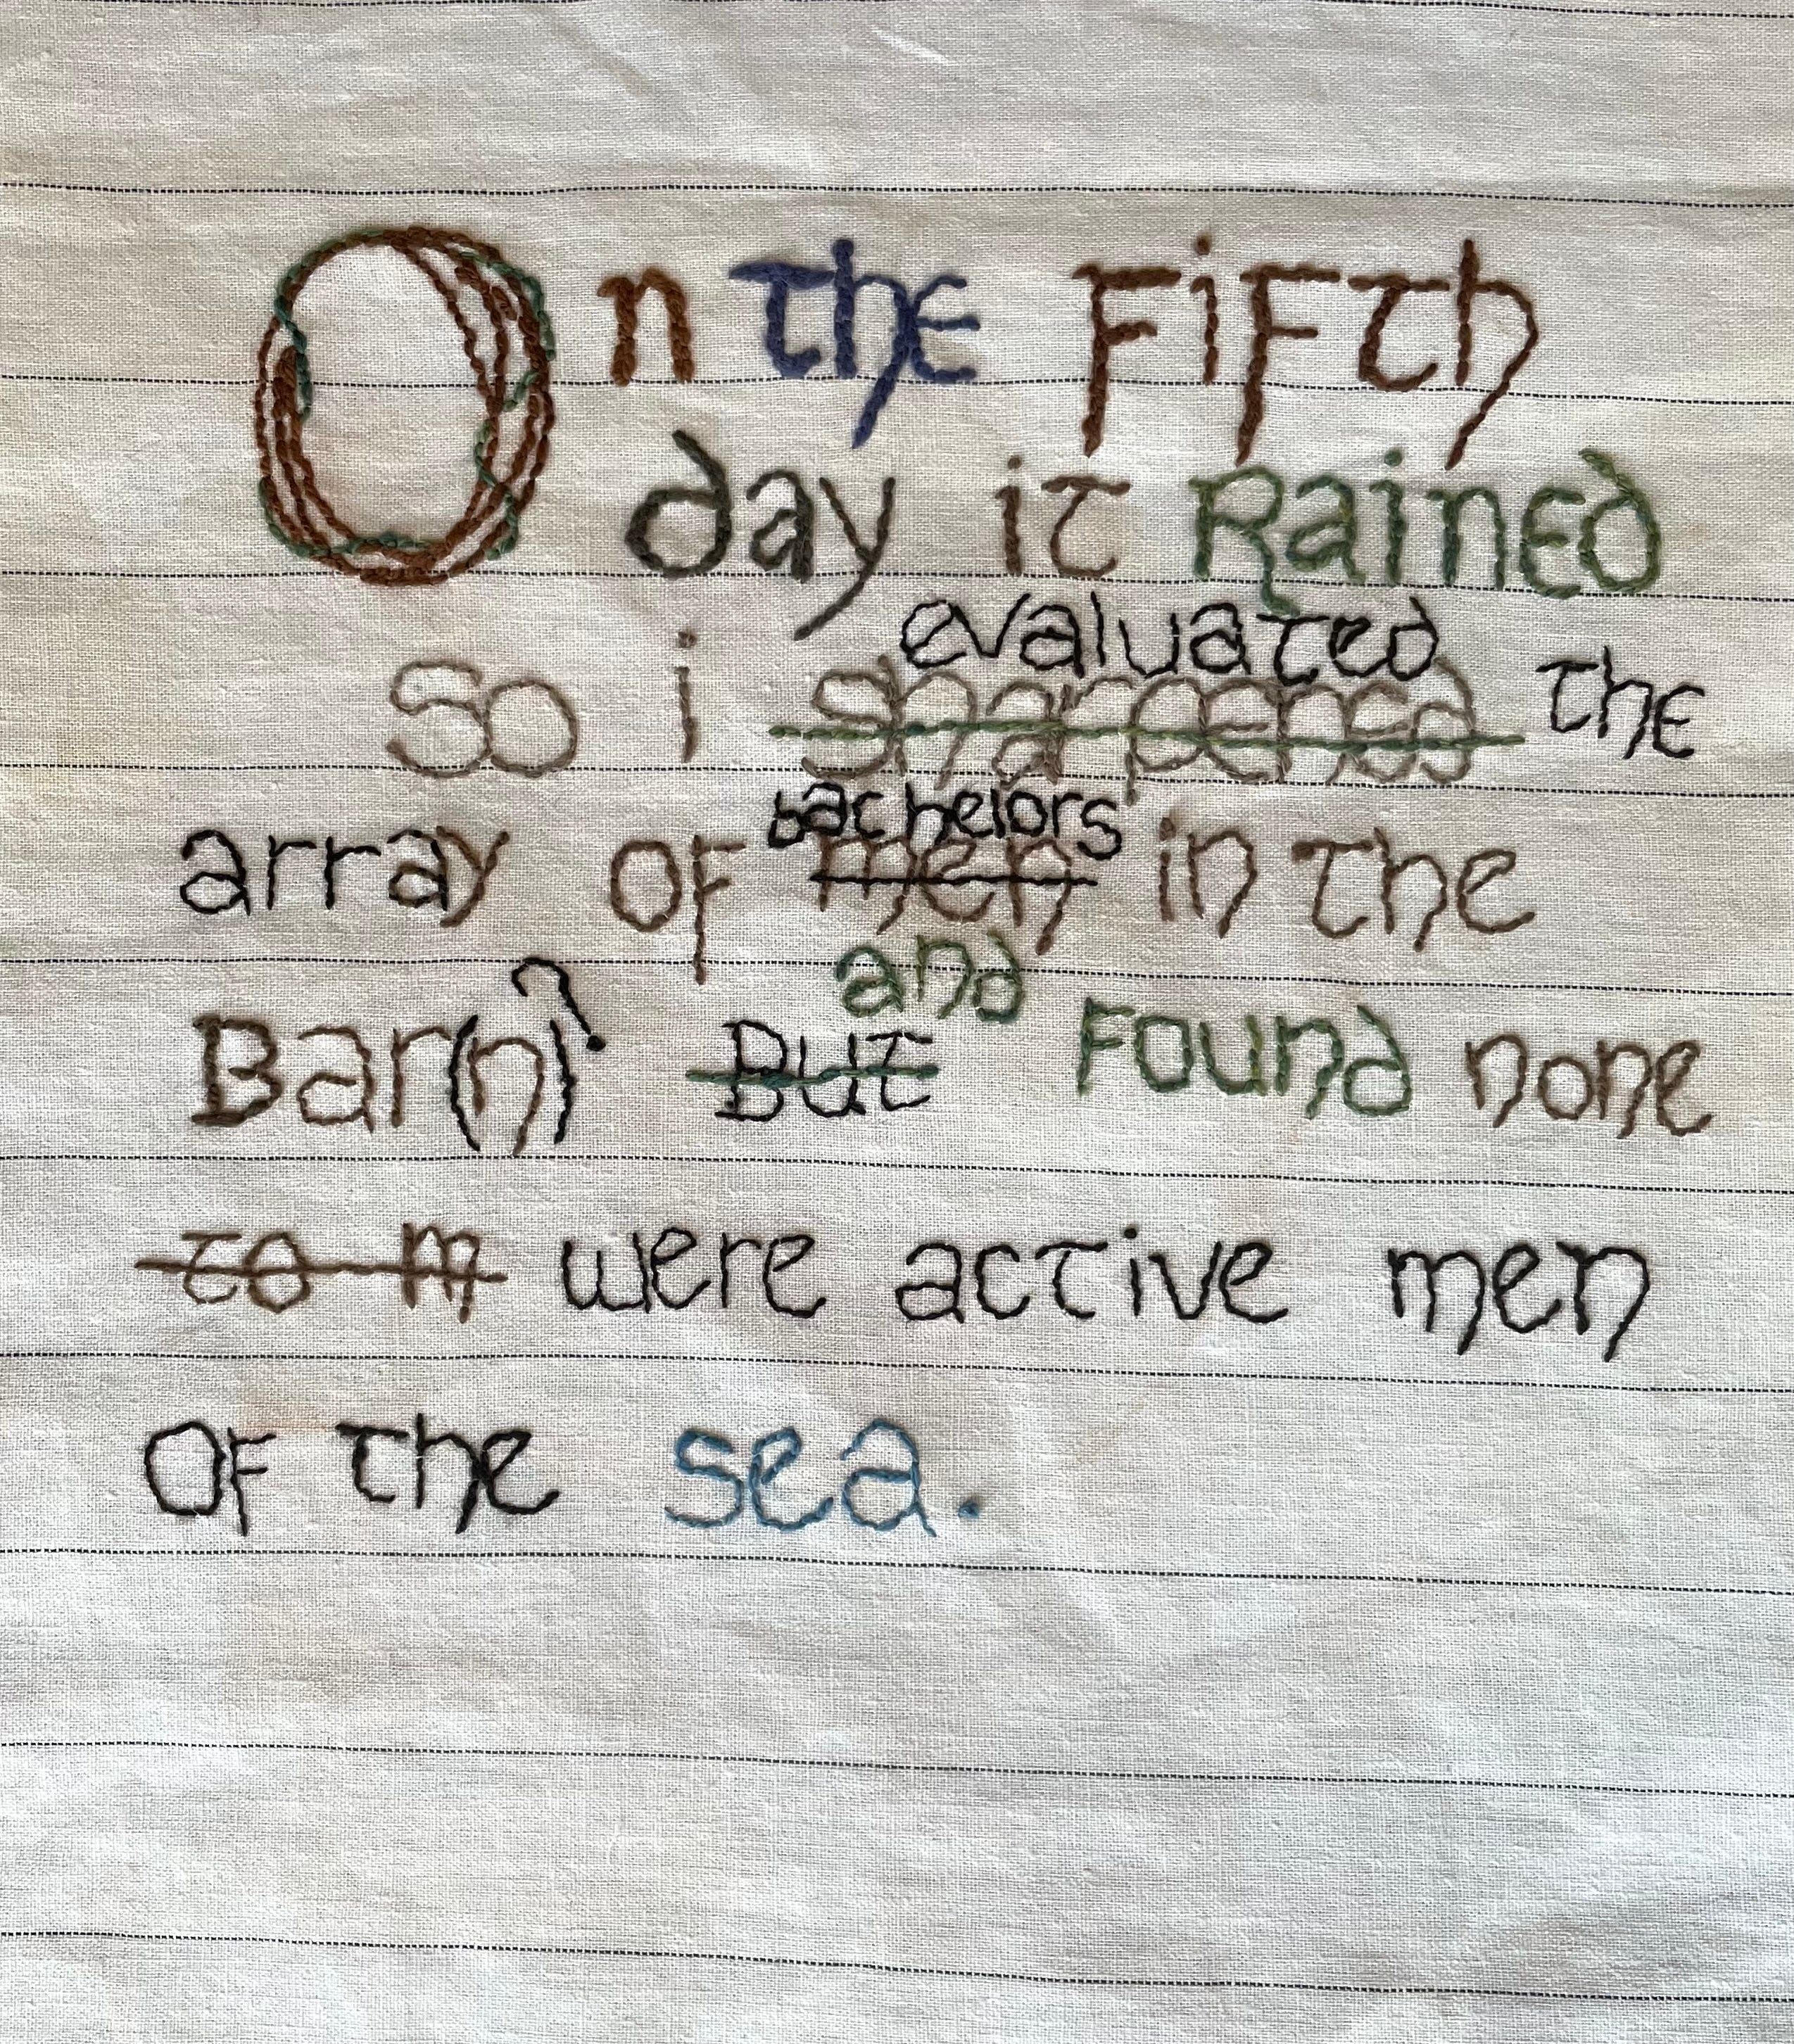 On the Fifth
day it Rained
evaluated
so i sharpened the
bachelors
array of men in the
and
Bar(n)? But Found none
to m were active men
of the sea.